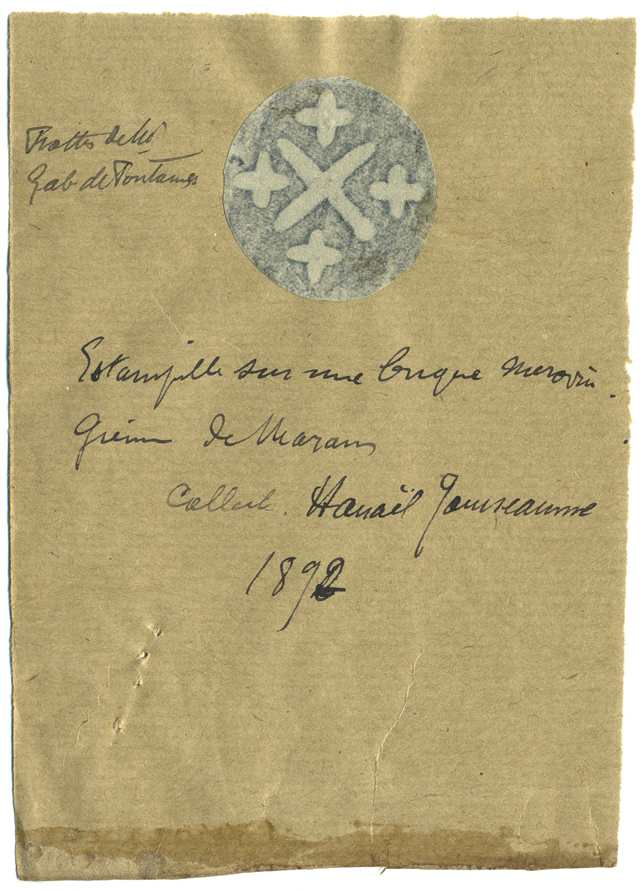 Frottis de Mr
Gab de Fontaines
Estampille sur une brique merovin-
gienne de Marans
Collect. Hanaël Jousseaume
1892